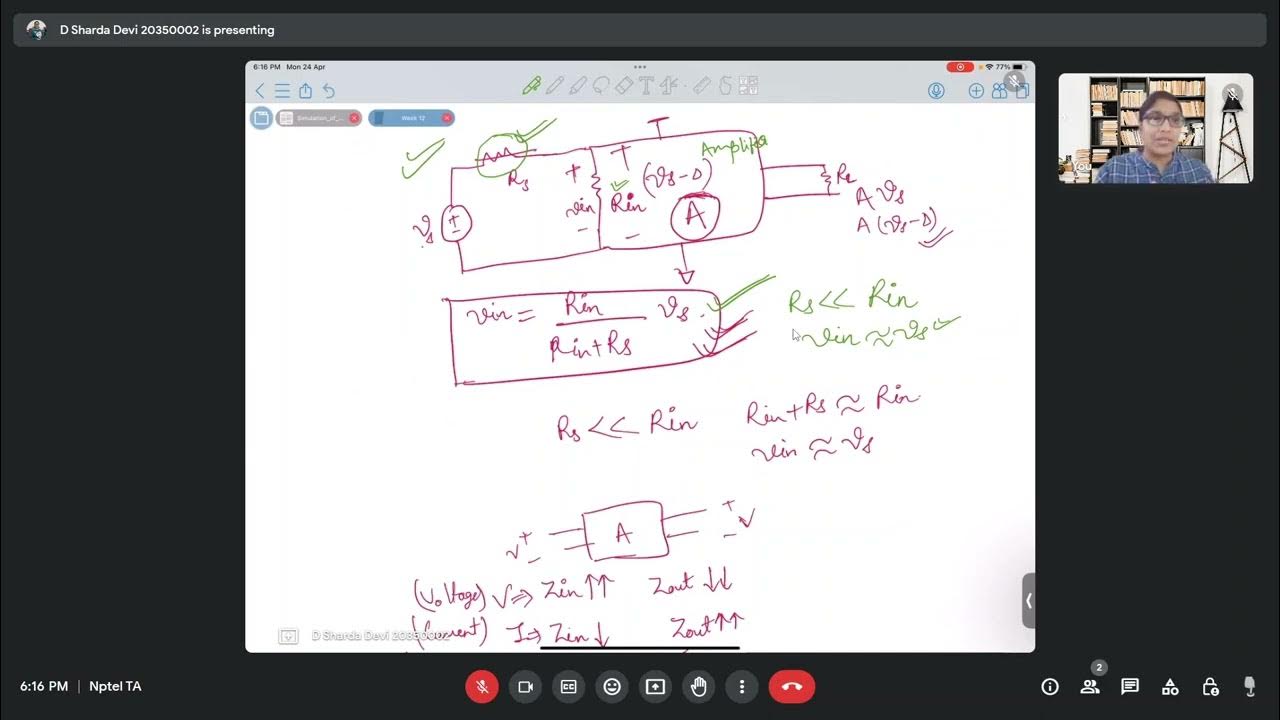 D Sharda Devi 20350002 is presenting
6:16 PM Mon 24 Apr
77%
Simulation_of_...
Week 12
Rs
Vs
+
-
+
Vin
-
+
Rin
-
(Vs-Δ)
A
Amplifier
RL
A Vs
A(Vs-Δ)
Vin = Rin / Rin+Rs Vs.
Rs << Rin
Vin ≈ Vs
Rs << Rin
Rin+Rs ≈ Rin
Vin ≈ Vs
V + -
A
+ - V
(Voltage) V ⇒ Zin ↑↑ Zout ↓↓
(Current) I ⇒ Zin ↓ Zout ↑↑
D Sharda Devi 20350002
You
6:16 PM | Nptel TA
2